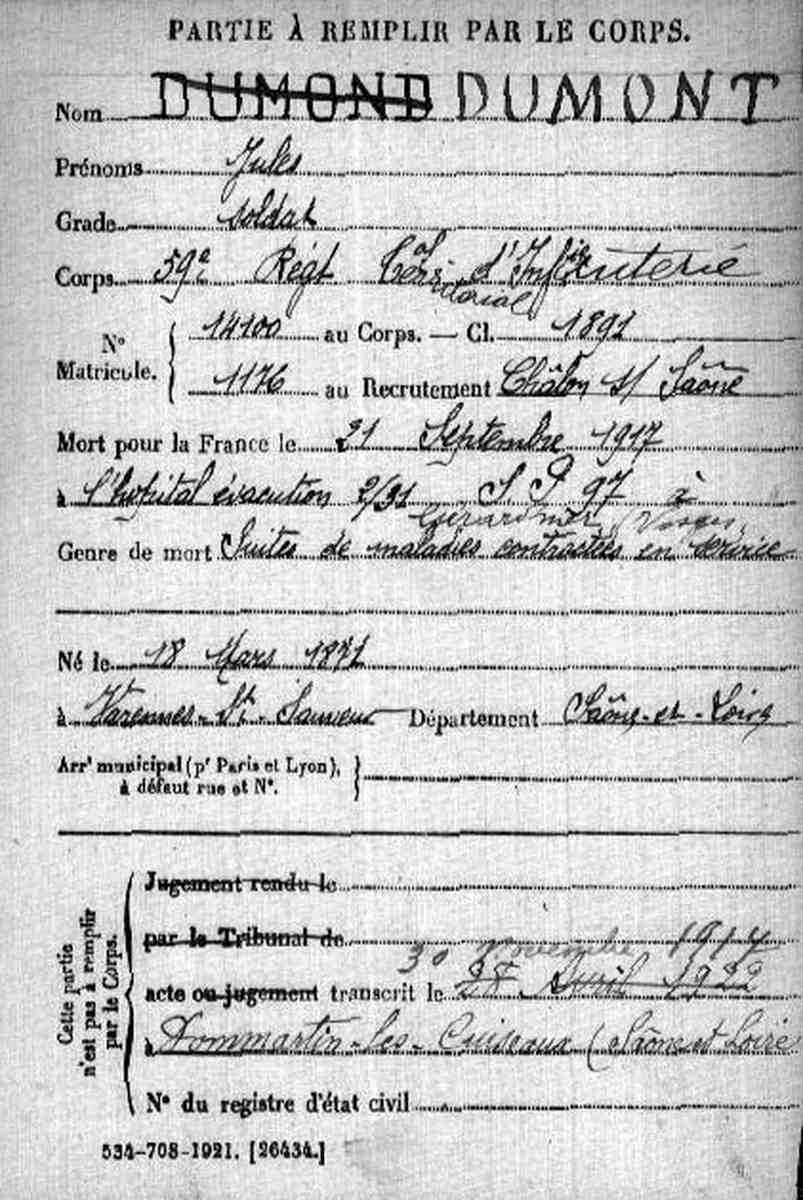 PARTIE À REMPLIR PAR LE CORPS.
Nom DUMOND DUMONT
Prénoms Jules
Grade soldat
Corps 59e Régt d'Infanterie
N° Matricule. 14100 au Corps. — Cl. 1891
1176 au Recrutement Châlon s/ Saône
Mort pour la France le 21 Septembre 1917
à l'hopital évacution 2/31 S P 97 à
Gérardmer (Vosges)
Genre de mort Suites de maladies contractées en service
Né le 18 Mars 1871
à Varennes-St-Sauveur Département Saône-et-Loire
Arrt municipal (pr Paris et Lyon),
à défaut rue et N°.
Cette partie
n'est pas à remplir
par le Corps.
Jugement rendu le
par le Tribunal de
30 Novembre 1917
acte ou jugement transcrit le 28 Avril 1922
à Dommartin-les-Cuiseaux (Saône et Loire
N° du registre d'état civil
534-708-1921. [26434.]